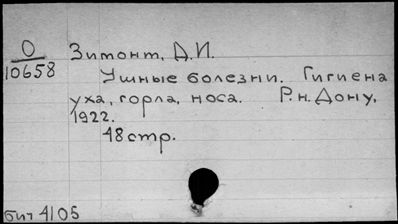 О
10658
Зимонт, Д.И.
Ушные болезни. Гигиена
уха, горла, носа. Р.н.Дону,
1922.
48 стр.
бит 4105